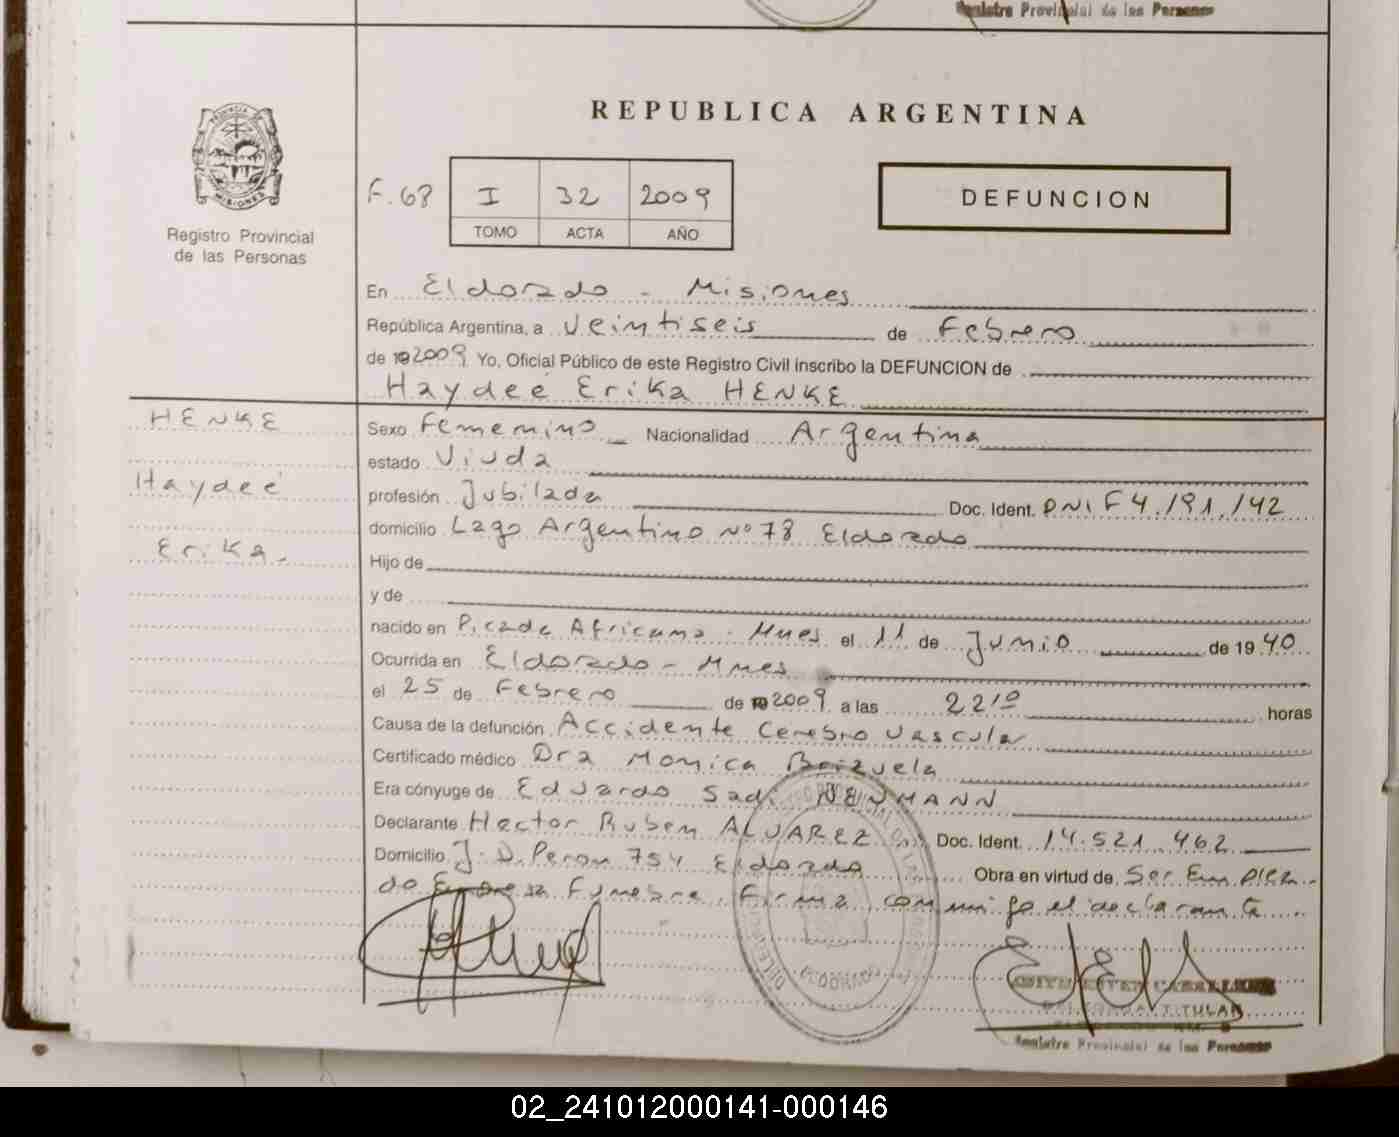 Registro Provincial de las Personas
REPUBLICA ARGENTINA
PROVINCIA DE
MISIONES
Registro Provincial
de las Personas
F. 68
I 32 2009
TOMO ACTA AÑO
DEFUNCION
En Eldorado - Misiones
República Argentina, a Veintiseis de Febrero
de 192009 Yo, Oficial Público de este Registro Civil inscribo la DEFUNCION de
Haydeé Erika HENKE
HENKE
Haydeé
Erika.-
Sexo Femenino Nacionalidad Argentina
estado Viuda
profesión Jubilada Doc. Ident. DNI F4./91./42
domicilio Lago Argentino Nº 78 Eldorado
Hijo de
y de
nacido en Picada Africana - Mnes el 11 de Junio de 1940
Ocurrida en Eldorado - Mnes
el 25 de Febrero de 192009 a las 22,10 horas
Causa de la defunción Accidente Cerebro Vascular
Certificado médico Dra Monica Brizuela
Era cónyuge de Eduardo Sadi NEUMANN
Declarante Hector Ruben ALVAREZ Doc. Ident. 14.521.462
Domicilio J. D. Peron 754 Eldorado Obra en virtud de Ser Emplea-
do Empresa Funebre. Firma conmigo el declarante
ELDORADO
TITULAR
Registro Provincial de las Personas
02_241012000141-000146